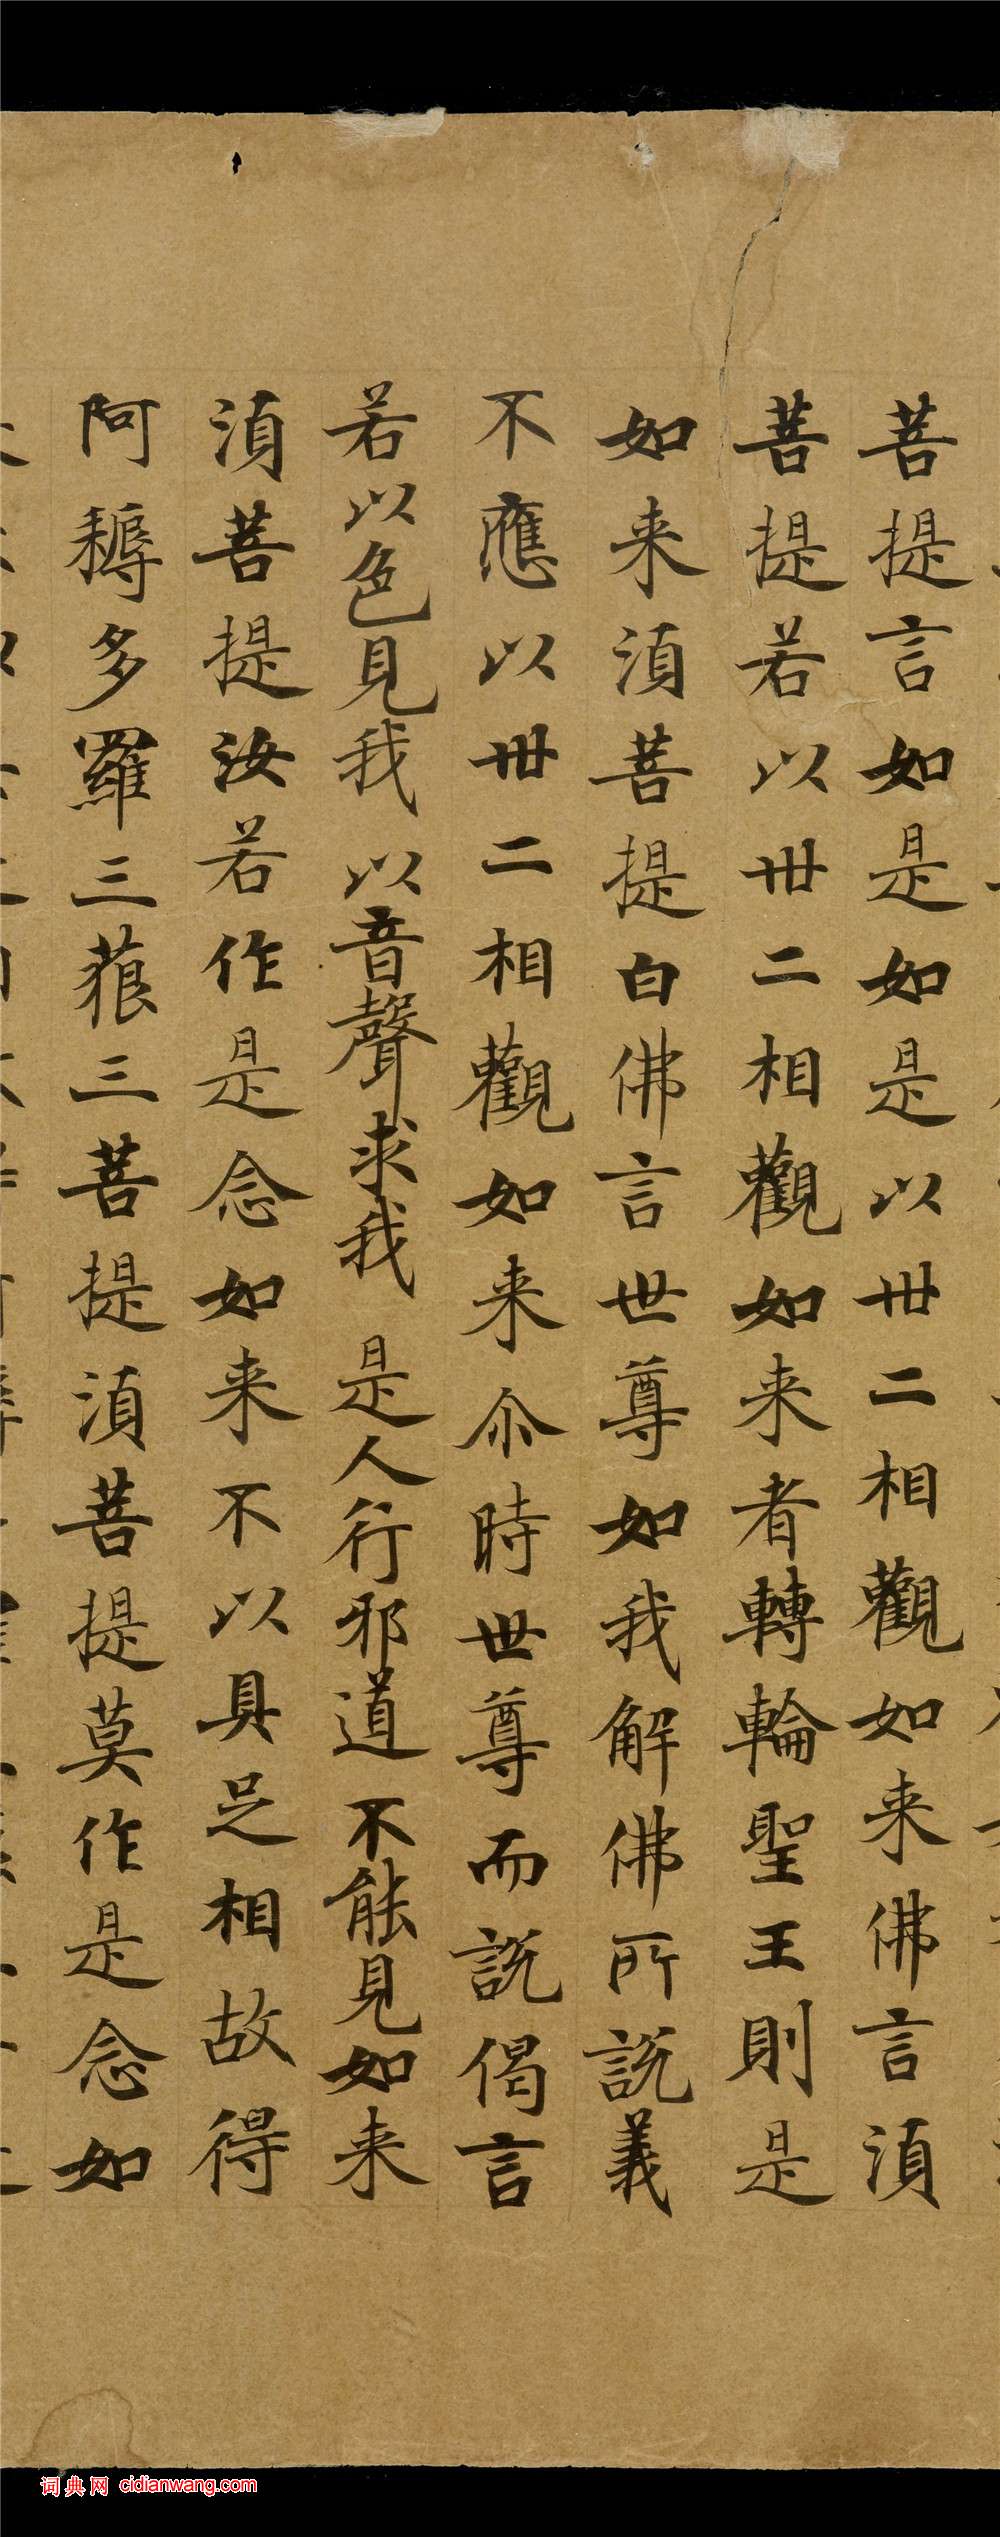 菩提言如是如是以卅二相觀如来佛言湏
菩提若以卅二相觀如来者轉輪聖王則是
如来湏菩提白佛言世尊如我解佛所説義
不應以卅二相觀如来尒時世尊而説偈言
若以色見我 以音聲求我 是人行邪道 不能見如来
湏菩提汝若作是念如来不以具足相故得
阿耨多羅三藐三菩提湏菩提莫作是念如
词典网 cidianwang.com